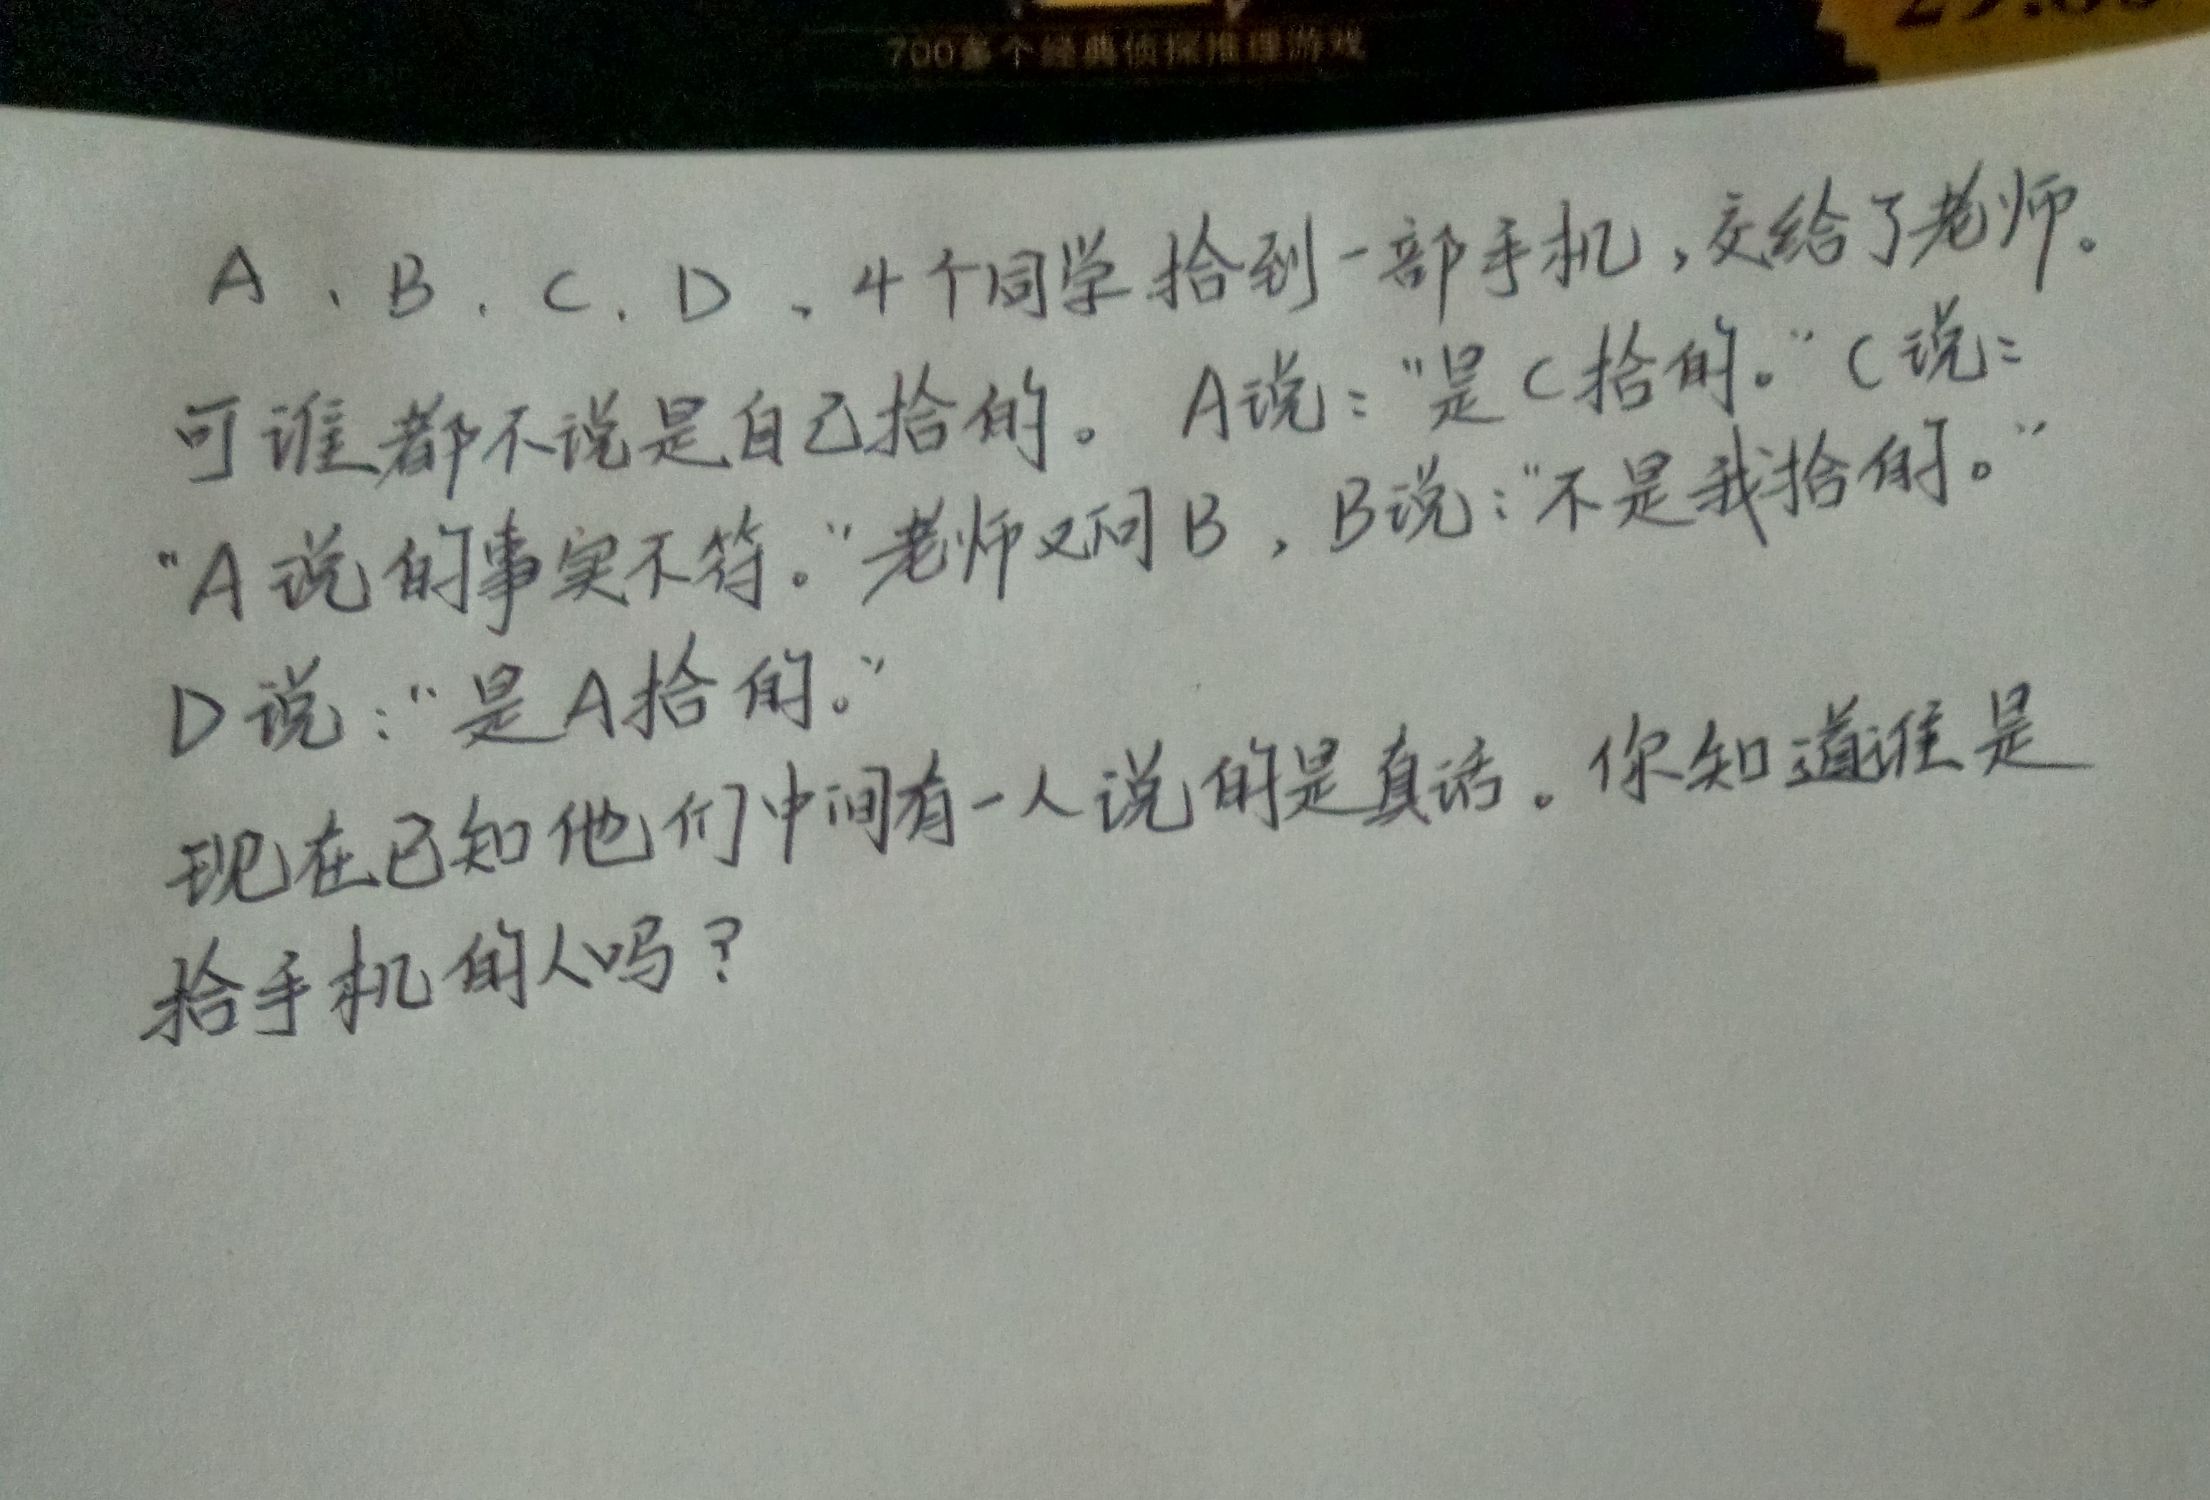 700多个经典侦探推理游戏
A、B、C、D、4个同学拾到一部手机,交给了老师。
可谁都不说是自己拾的。A说:“是C拾的。”C说:
“A说的事实不符。”老师又问B,B说:“不是我拾的。”
D说:“是A拾的。”
现在已知他们中间有一人说的是真话。你知道谁是
拾手机的人吗?